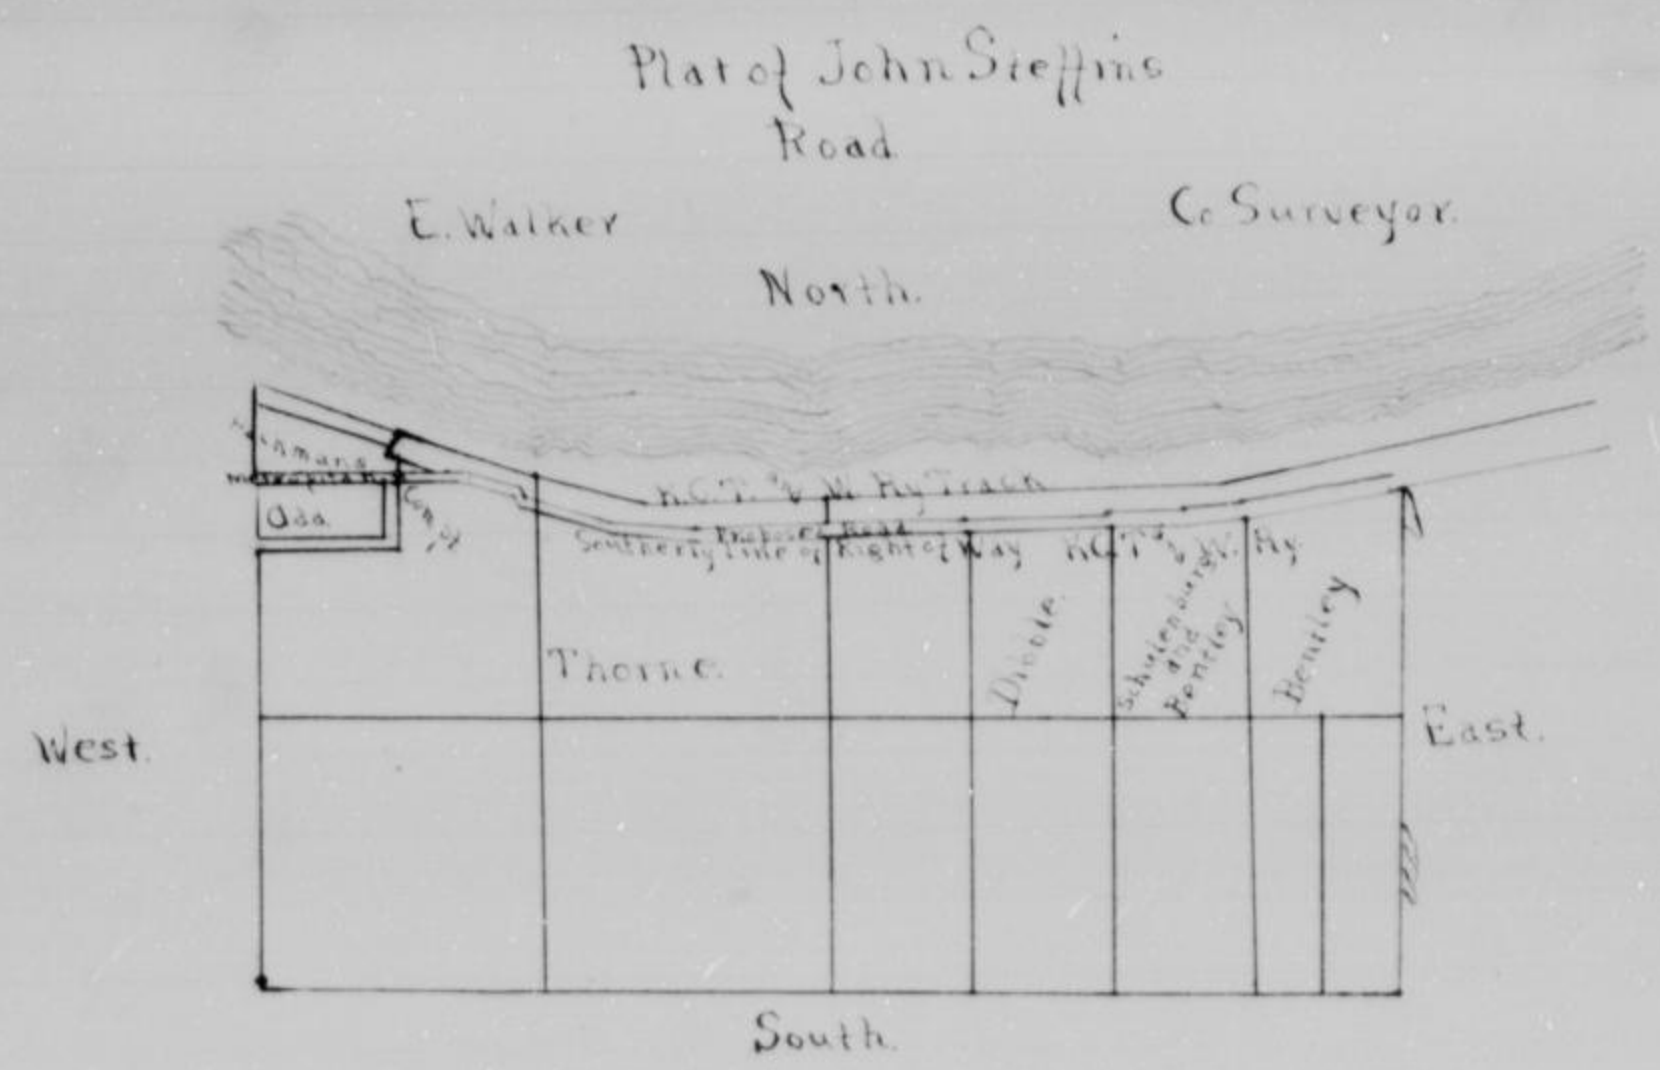 Plat of John Steffins
Road.
E. Walker
Co Surveyor.
North.
K.C.T. & W. Ry Track
Metropolitan
Add.
Proposed Road
Southerly Line of Right of Way K.C.T & W. Ry.
Thorne.
Dibble.
Schulenburg
and
Bentley
Bentley
West.
East.
South.